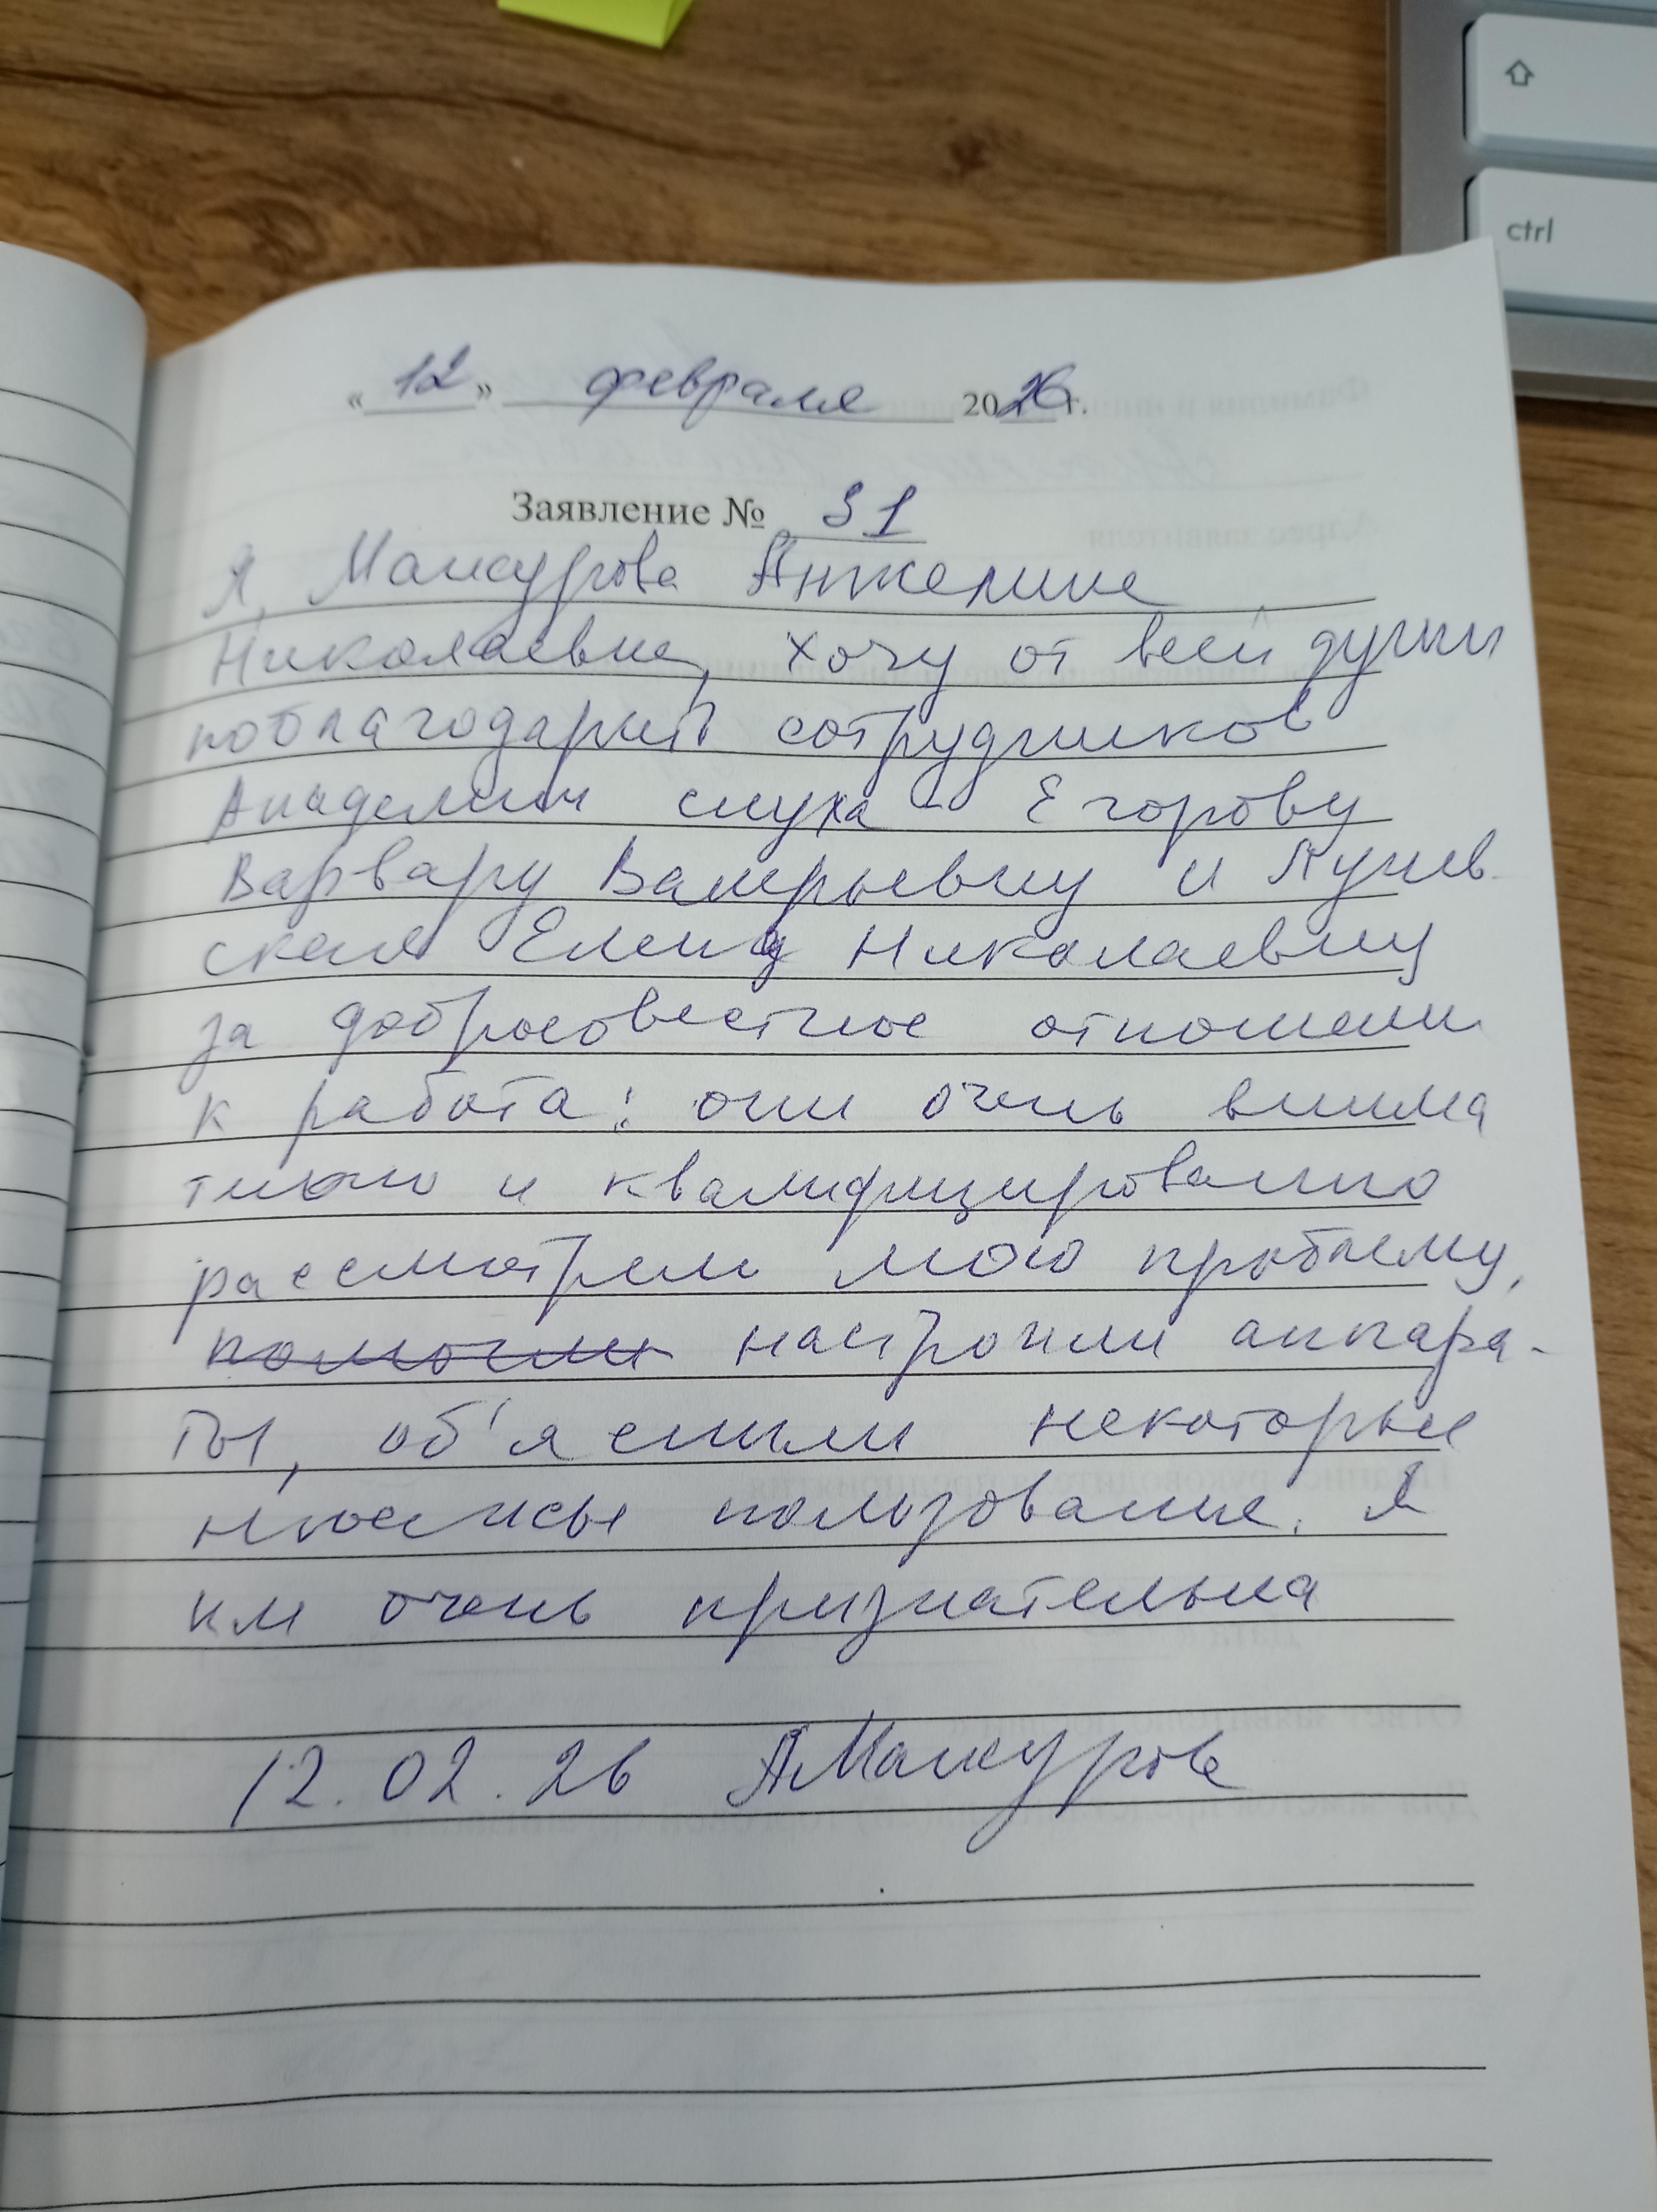 « 12 » февраля 2026 г.
Заявление № 31
Я, Мансурова Анжелина
Николаевна, хочу от всей души
поблагодарить сотрудников
Академии слуха - Егорову
Варвару Валерьевну и
Елену Николаевну
за добросовестное отношени
к работа: они очень внима
тельно и квалифицированно
рассмотрели мою проблему,
помогли настроили аппара-
ты, об'яснили некоторые
нюансы пользование. Я
им очень признательна
12.02.26 АМансурова
ctrl